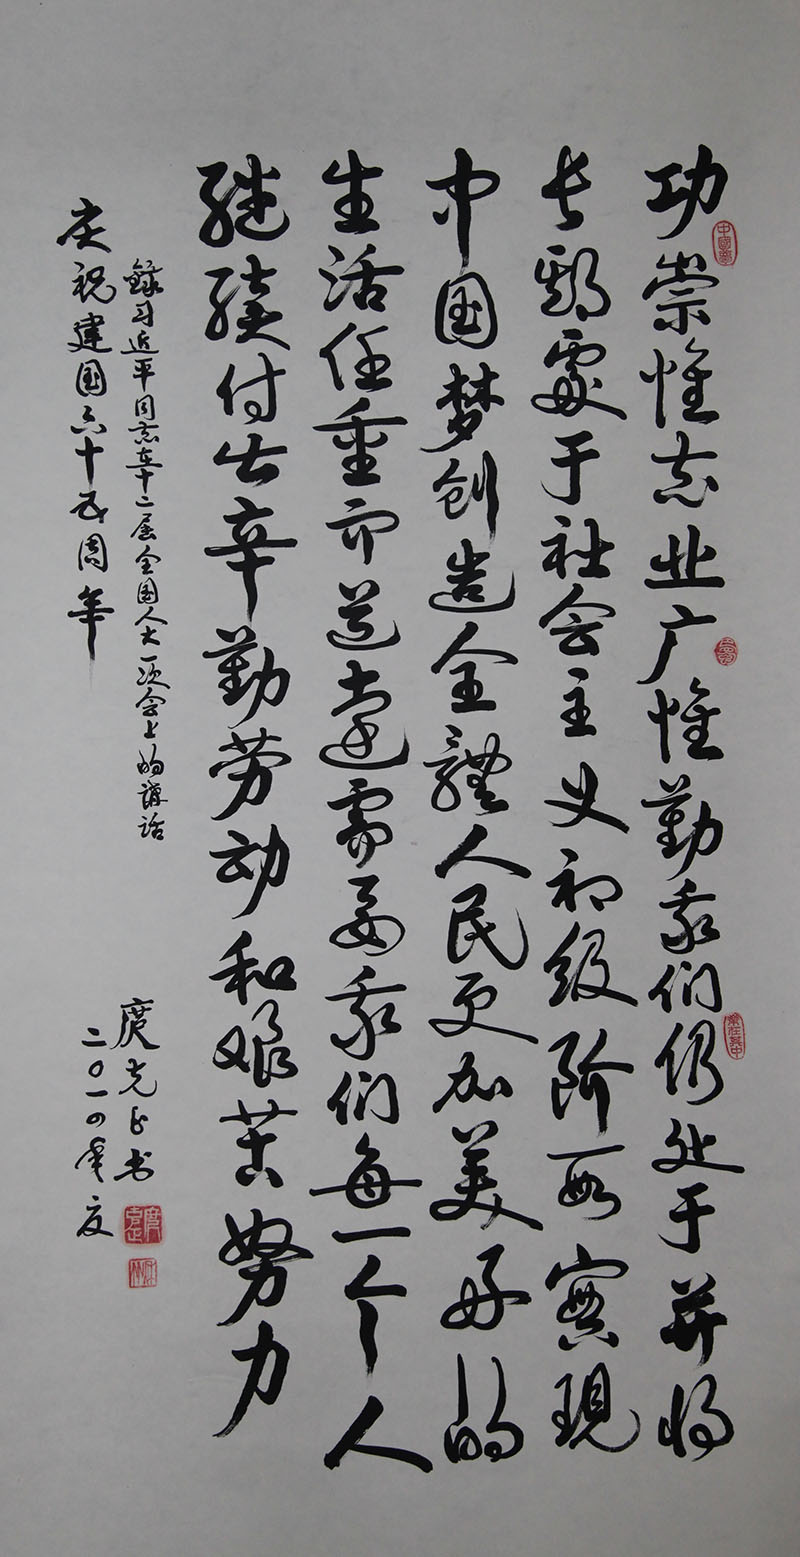 功崇惟志业广惟勤我们仍处于并将
长期處于社会主义初级阶段實现
中国梦创造全體人民更加美好的
生活任重而道遠需要我们每一个人
继续付出辛勤劳动和艰苦努力
錄习近平同志在十二届全国人大一次会上的講话
庆祝建国六十五周年
庹克正书
二〇一四年夏
中國夢